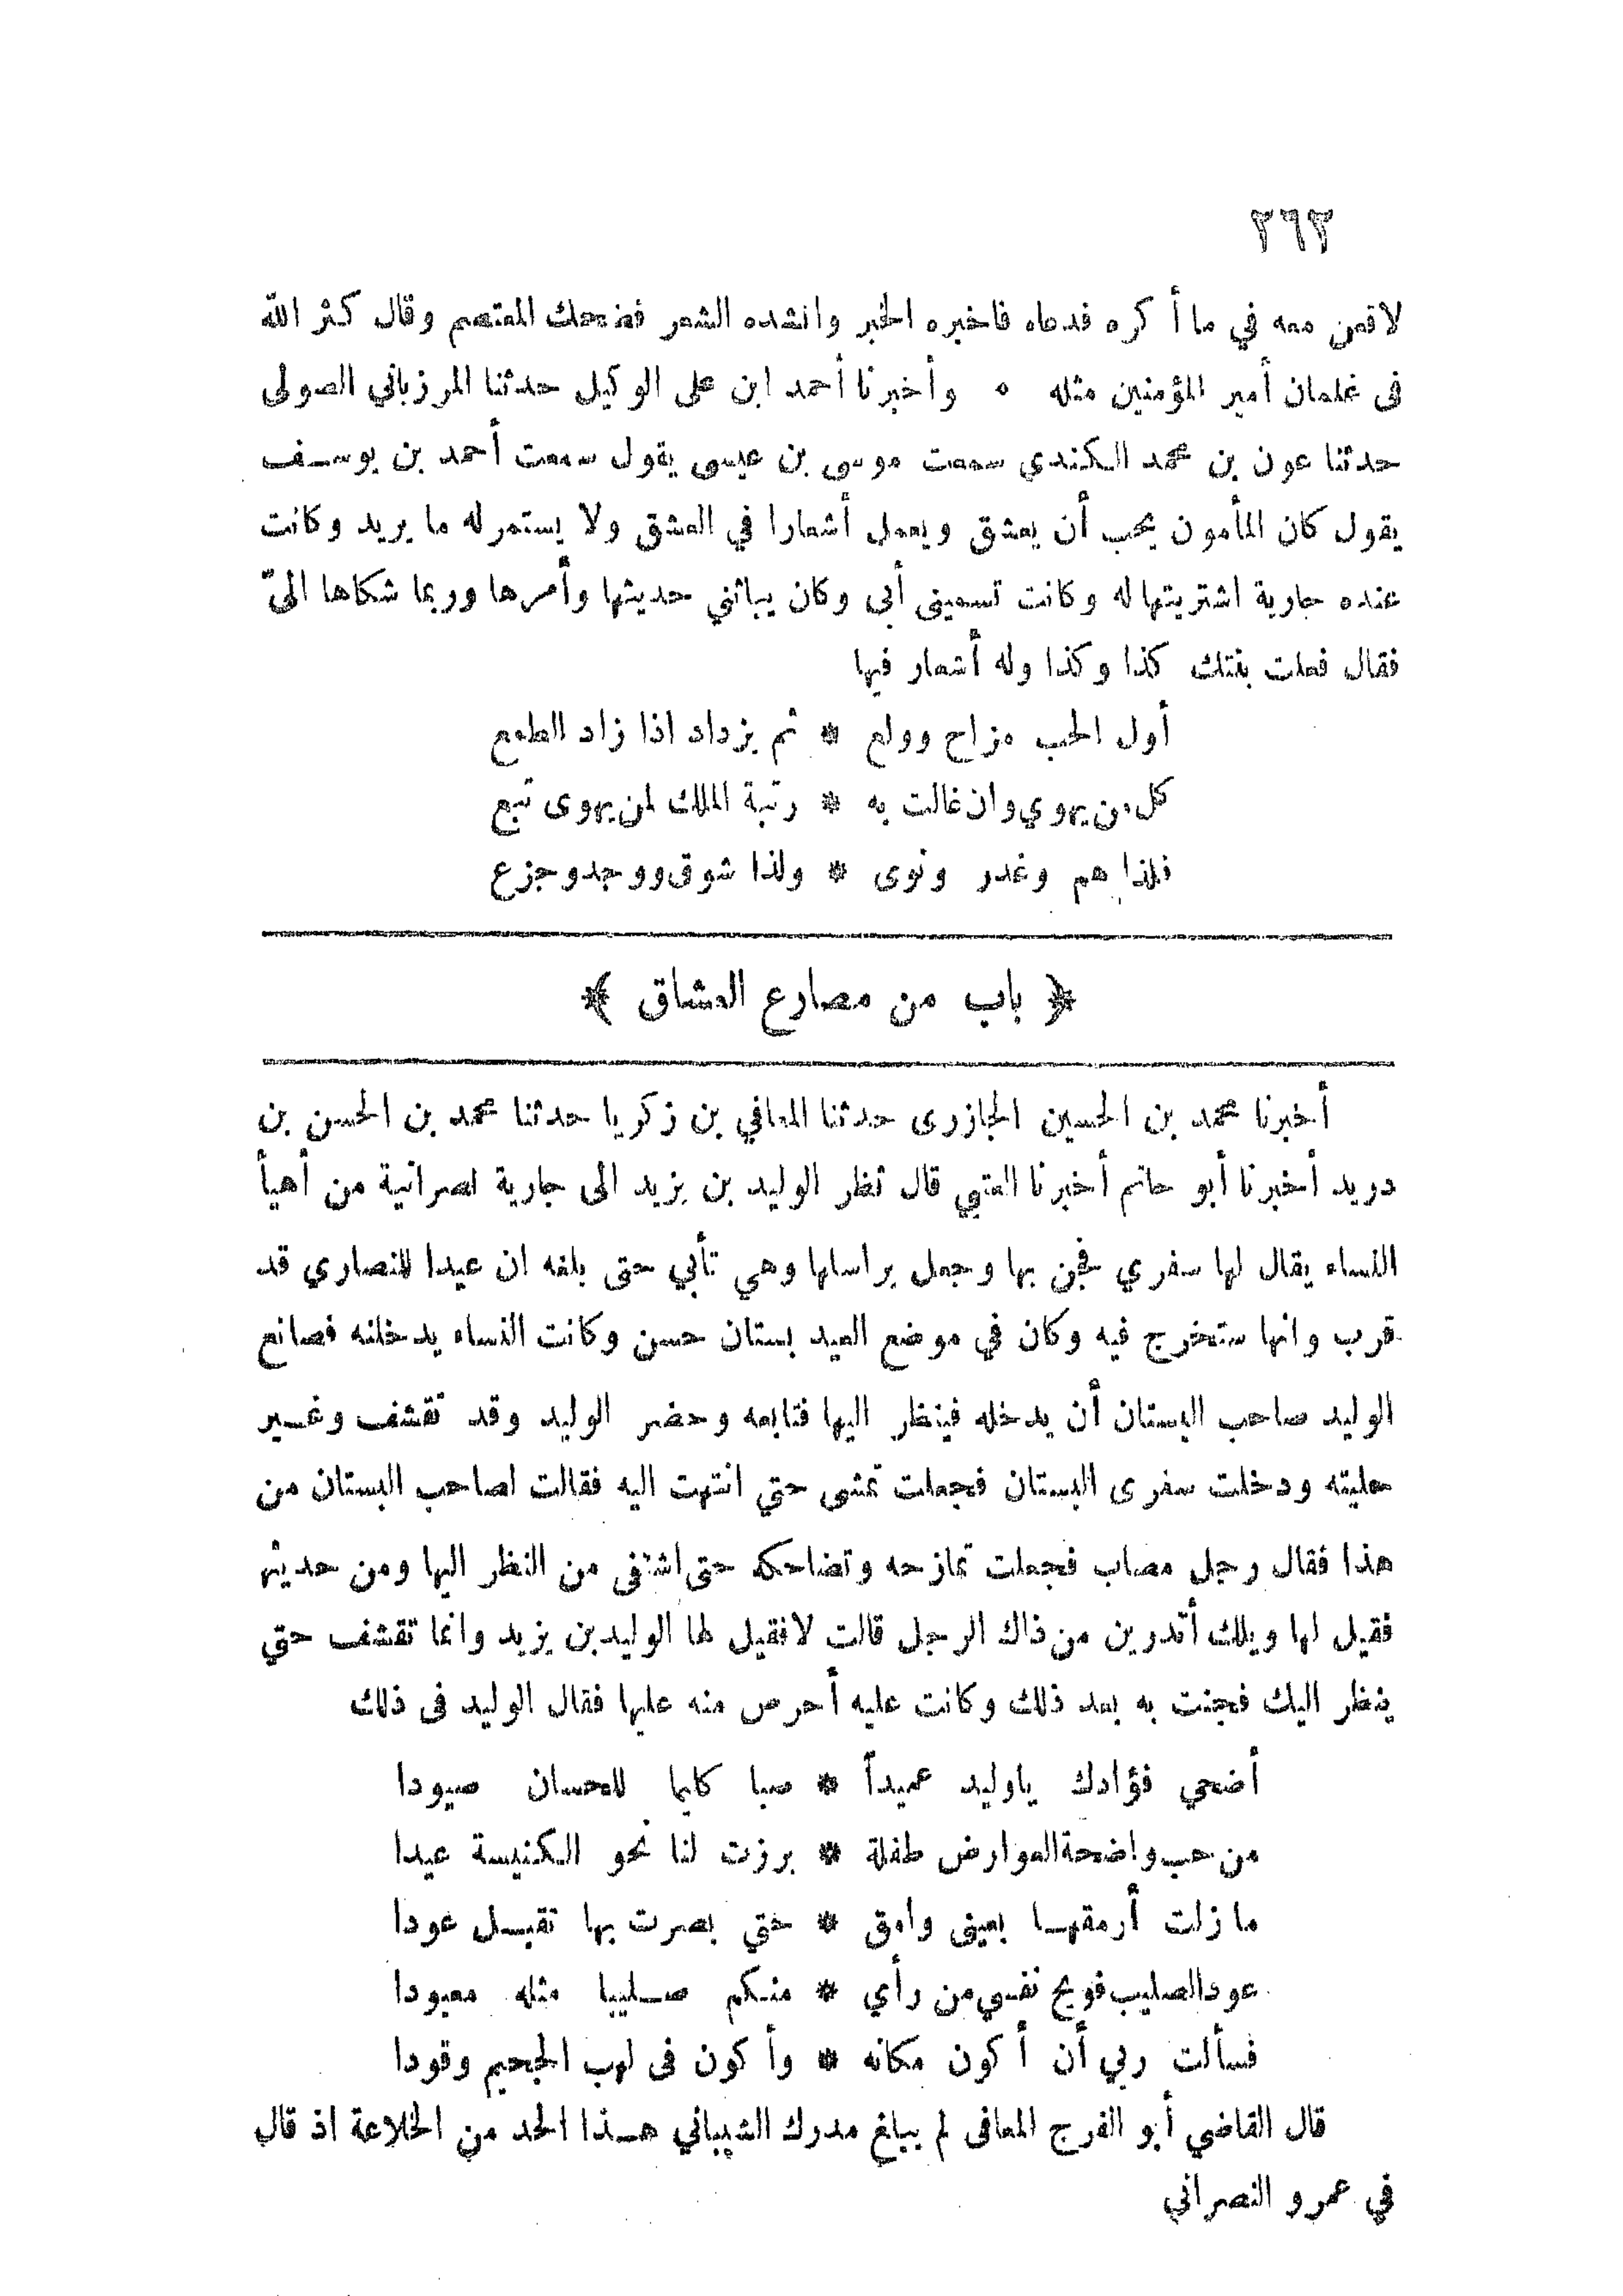 ٢٦٢
لاقعن معه في ما أكره فدعاه فاخبره الخبر وانشده الشعر فضحك المعتصم وقال كثر الله
فى غلمان أمير المؤمنين مثله ٠ وأخبرنا أحمد ابن على الوكيل حدثنا المرزباني الصولى
حدثنا عون بن محمد الكندي سمعت موسى بن عيسى يقول سمعت أحمد بن يوسف
يقول كان المأمون يحب أن يعشق ويعمل أشعارا في العشق ولا يستمر له ما يريد وكانت
عنده جارية اشتريتها له وكانت تسميني أبى وكان يباثني حديثها وأمرها وربما شكاها الىّ
فقال فعلت بنتك كذا وكذا وله أشعار فيها
أول الحب مزاح وولع * ثم يزداد اذا زاد الطمع
كل من يهوي وان غالت به * رتبة الملك لمن يهوى تبع
فلذا هم وغدر ونوى * ولذا شوق ووجد وجزع
﴿ باب من مصارع العشاق ﴾
أخبرنا محمد بن الحسين الجازرى حدثنا المعافي بن زكريا حدثنا محمد بن الحسن بن
دريد أخبرنا أبو حاتم أخبرنا العتبي قال نظر الوليد بن يزيد الى جارية نصرانية من أهيأ
النساء يقال لها سفري فجن بها وجعل يراسلها وهي تأبي حتى بلغه ان عيدا للنصاري قد
قرب وانها ستخرج فيه وكان في موضع العيد بستان حسن وكانت النساء يدخلنه فصانع
الوليد صاحب البستان أن يدخله فينظر اليها فتابعه وحضر الوليد وقد تقشف وغير
حليته ودخلت سفرى البستان فجعلت تمشى حتي انتهت اليه فقالت لصاحب البستان من
هذا فقال رجل مصاب فجعلت تمازحه وتضاحكه حتى اشتفى من النظر اليها ومن حديثها
فقيل لها ويلك أتدرين من ذاك الرجل قالت لا فقيل لها الوليد بن يزيد وانما تقشف حتي
ينظر اليك فجنت به بعد ذلك وكانت عليه أحرص منه عليها فقال الوليد فى ذلك
أضحي فؤادك ياوليد عميداً * صبا كليما للحسان صيودا
من حب واضحة العوارض طفلة * برزت لنا نحو الكنيسة عيدا
ما زلت أرمقها بعينى وامق * حتي بصرت بها تقبل عودا
عود الصليب فويح نفسي من رأي * منكم صليبا مثله معبودا
فسألت ربي أن أكون مكانه * وأكون فى لهب الجحيم وقودا
قال القاضي أبو الفرج المعافى لم يبلغ مدرك الشيباني هذا الحد من الخلاعة اذ قال
في عمرو النصراني